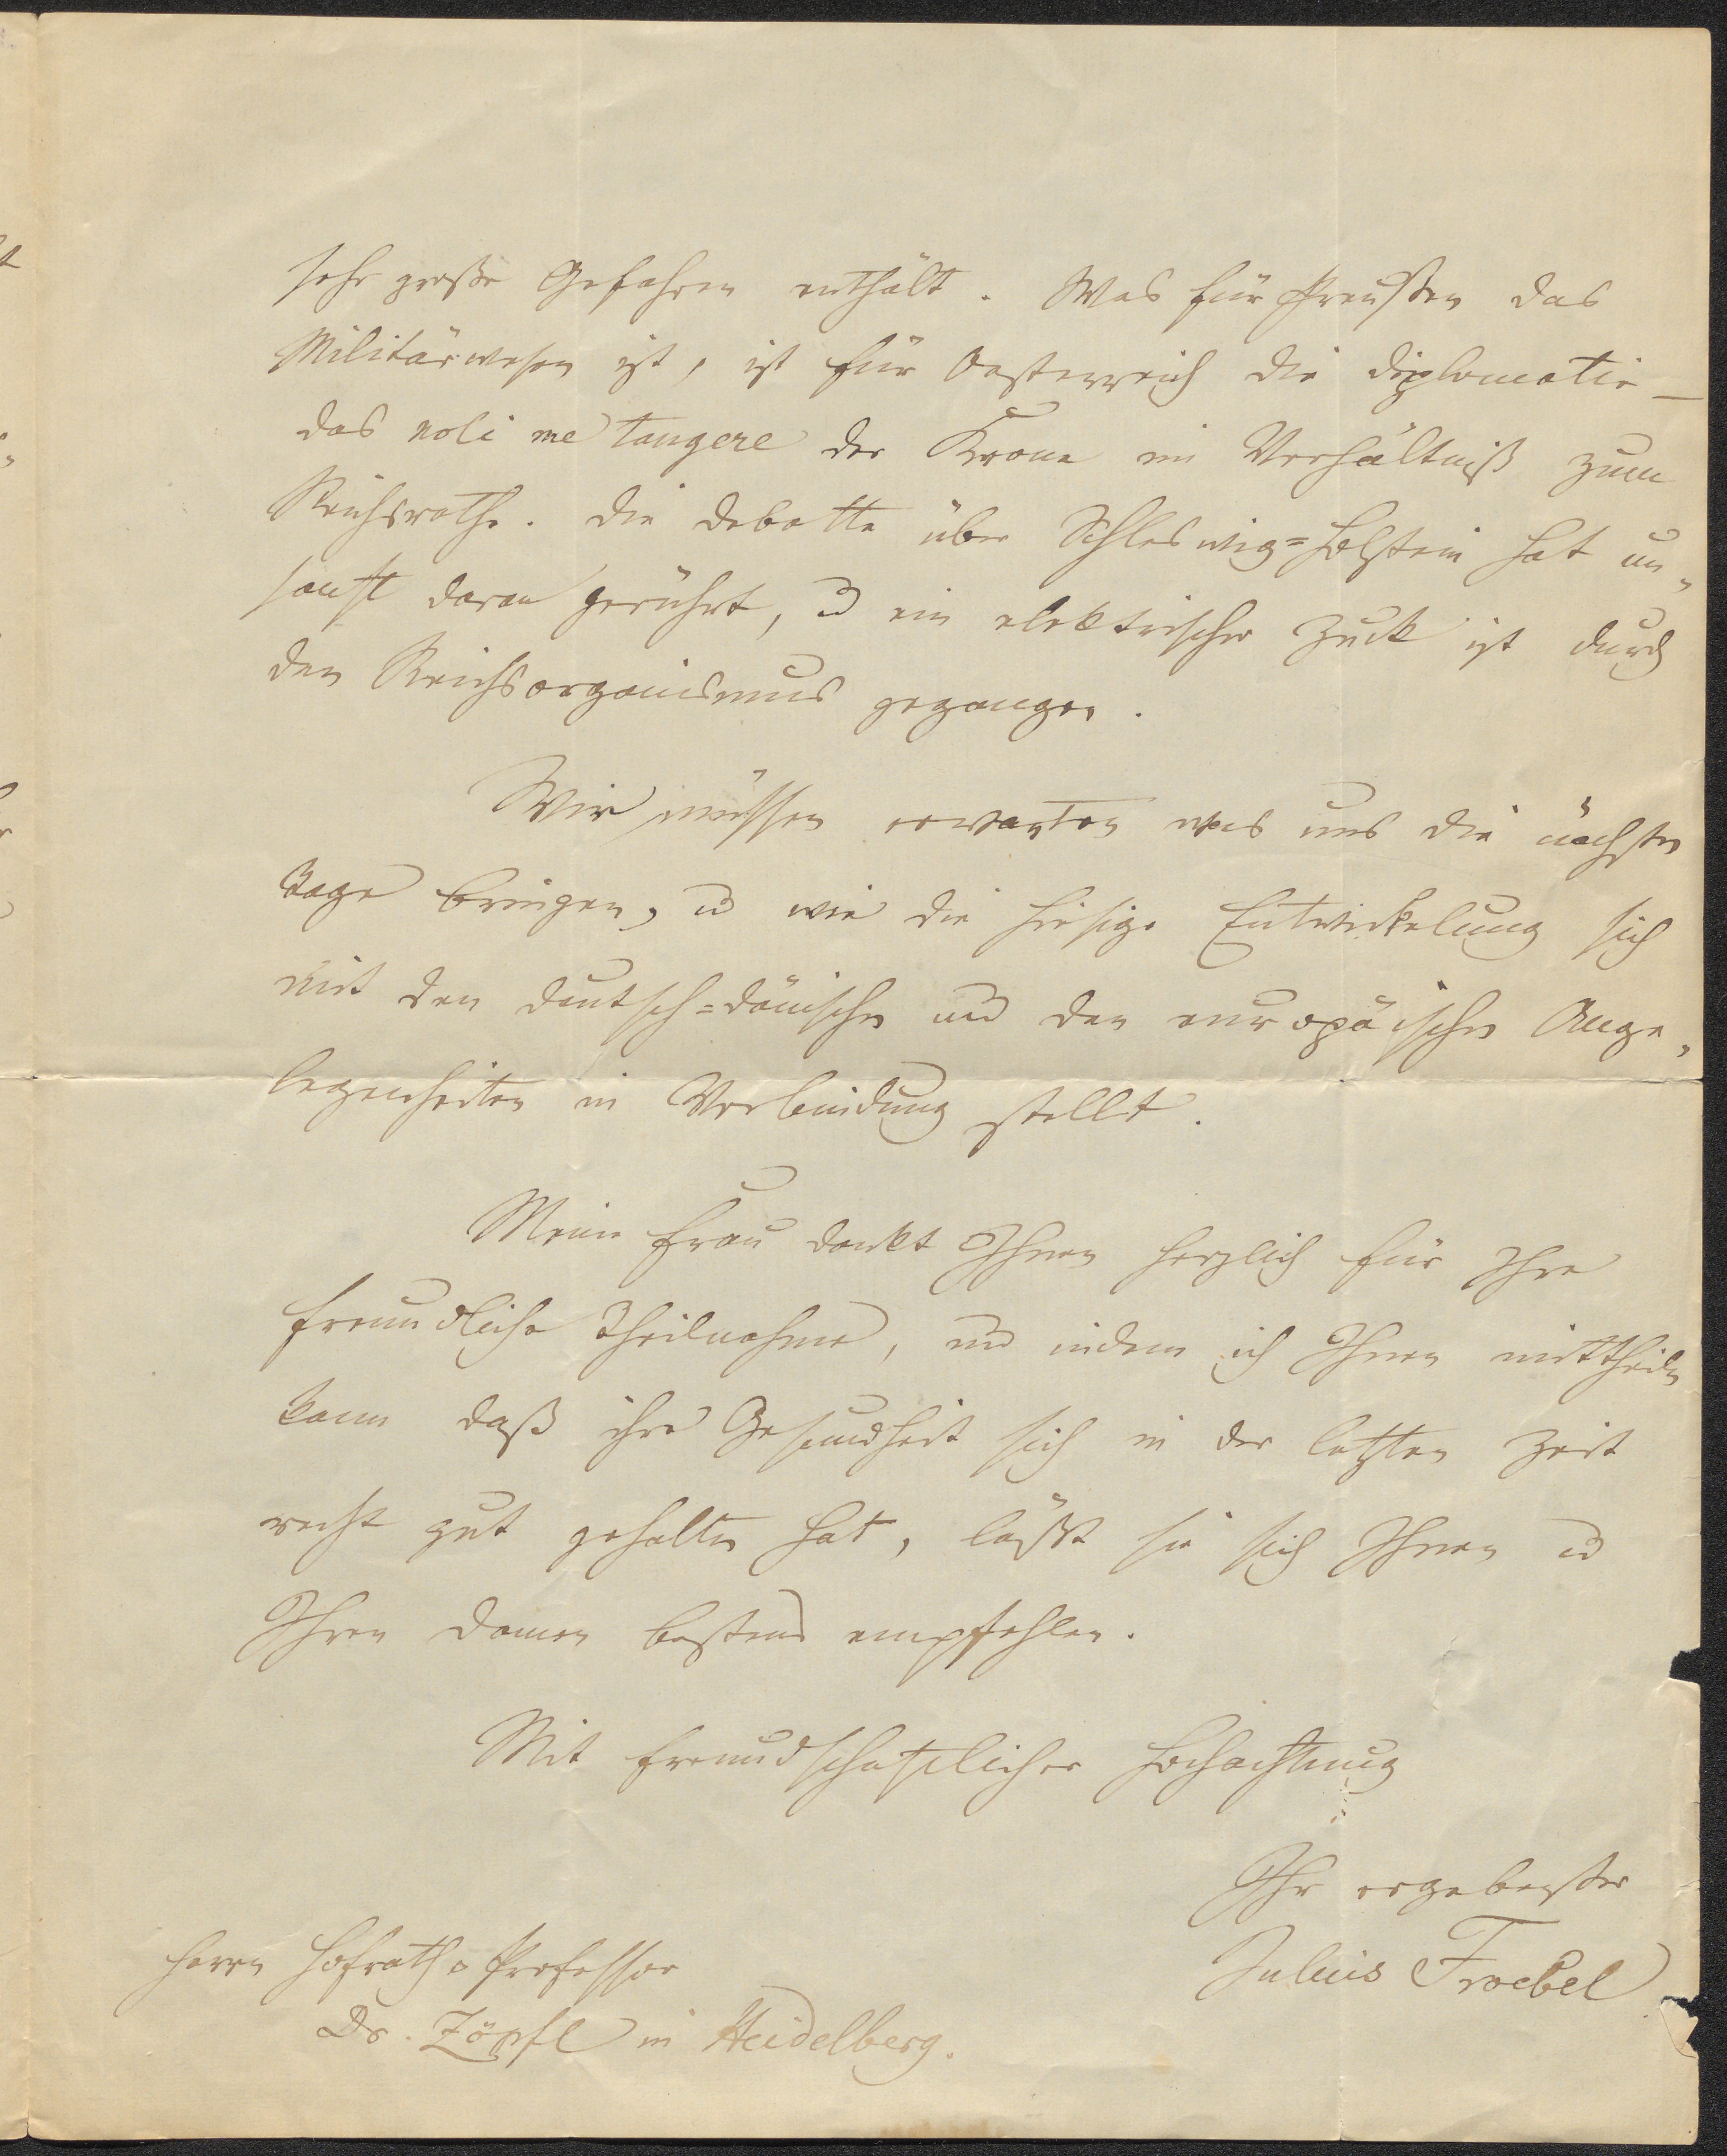 sehr große Gefahren enthält. Was für Preußen das
Militärwesen ist, ist für Oesterreich die Diplomatie –
das noli me tangere der Krone im Verhältniß zum
Reichsrathe. Die Debatte über Schleswig=Holstein hat un„
sanft daran gerührt, u ein elektrischer Zuck ist durch
den Reichsorganismus gegangen.
Wir müssen erwarten was uns die nächsten
Tage bringen, u wie die hiesige Entwickelung sich
mit den deutsch=dänischen und den europäischen Ange„
legenheiten in Verbindung stellt.
Meine Frau dankt Ihnen herzlich für Ihre
freundliche Theilnahme, und indem ich Ihnen mittheilen
kann daß ihre Gesundheit sich in der letzten Zeit
recht gut gehalten hat, läßt sie sich Ihnen u
Ihren Damen bestens empfehlen.
Mit freundschaftlicher Hochachtung
Ihr ergebenster
Julius Froebel
Herrn Hofrath u Professor
Dr. Zöpfl in Heidelberg.